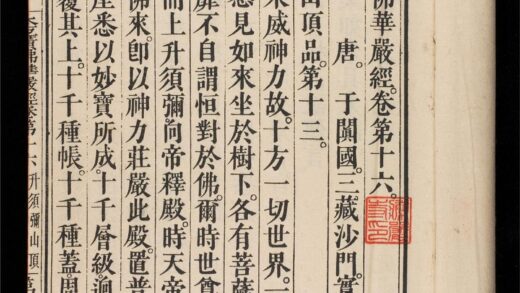 佛華嚴經。卷第十六。
唐。于闐國。三藏沙門。實
山頂品。第十三。
來威神力故。十方一切世界。一
悉見如來坐於樹下。各有菩薩
靡不自謂恒對於佛。爾時世尊
而上升須彌。向帝釋殿。時天帝
佛來。即以神力莊嚴此殿。置普
座悉以妙寶所成。十千層級。迥
覆其上。十千種帳。十千種蓋。周
第十六 升須彌山頂